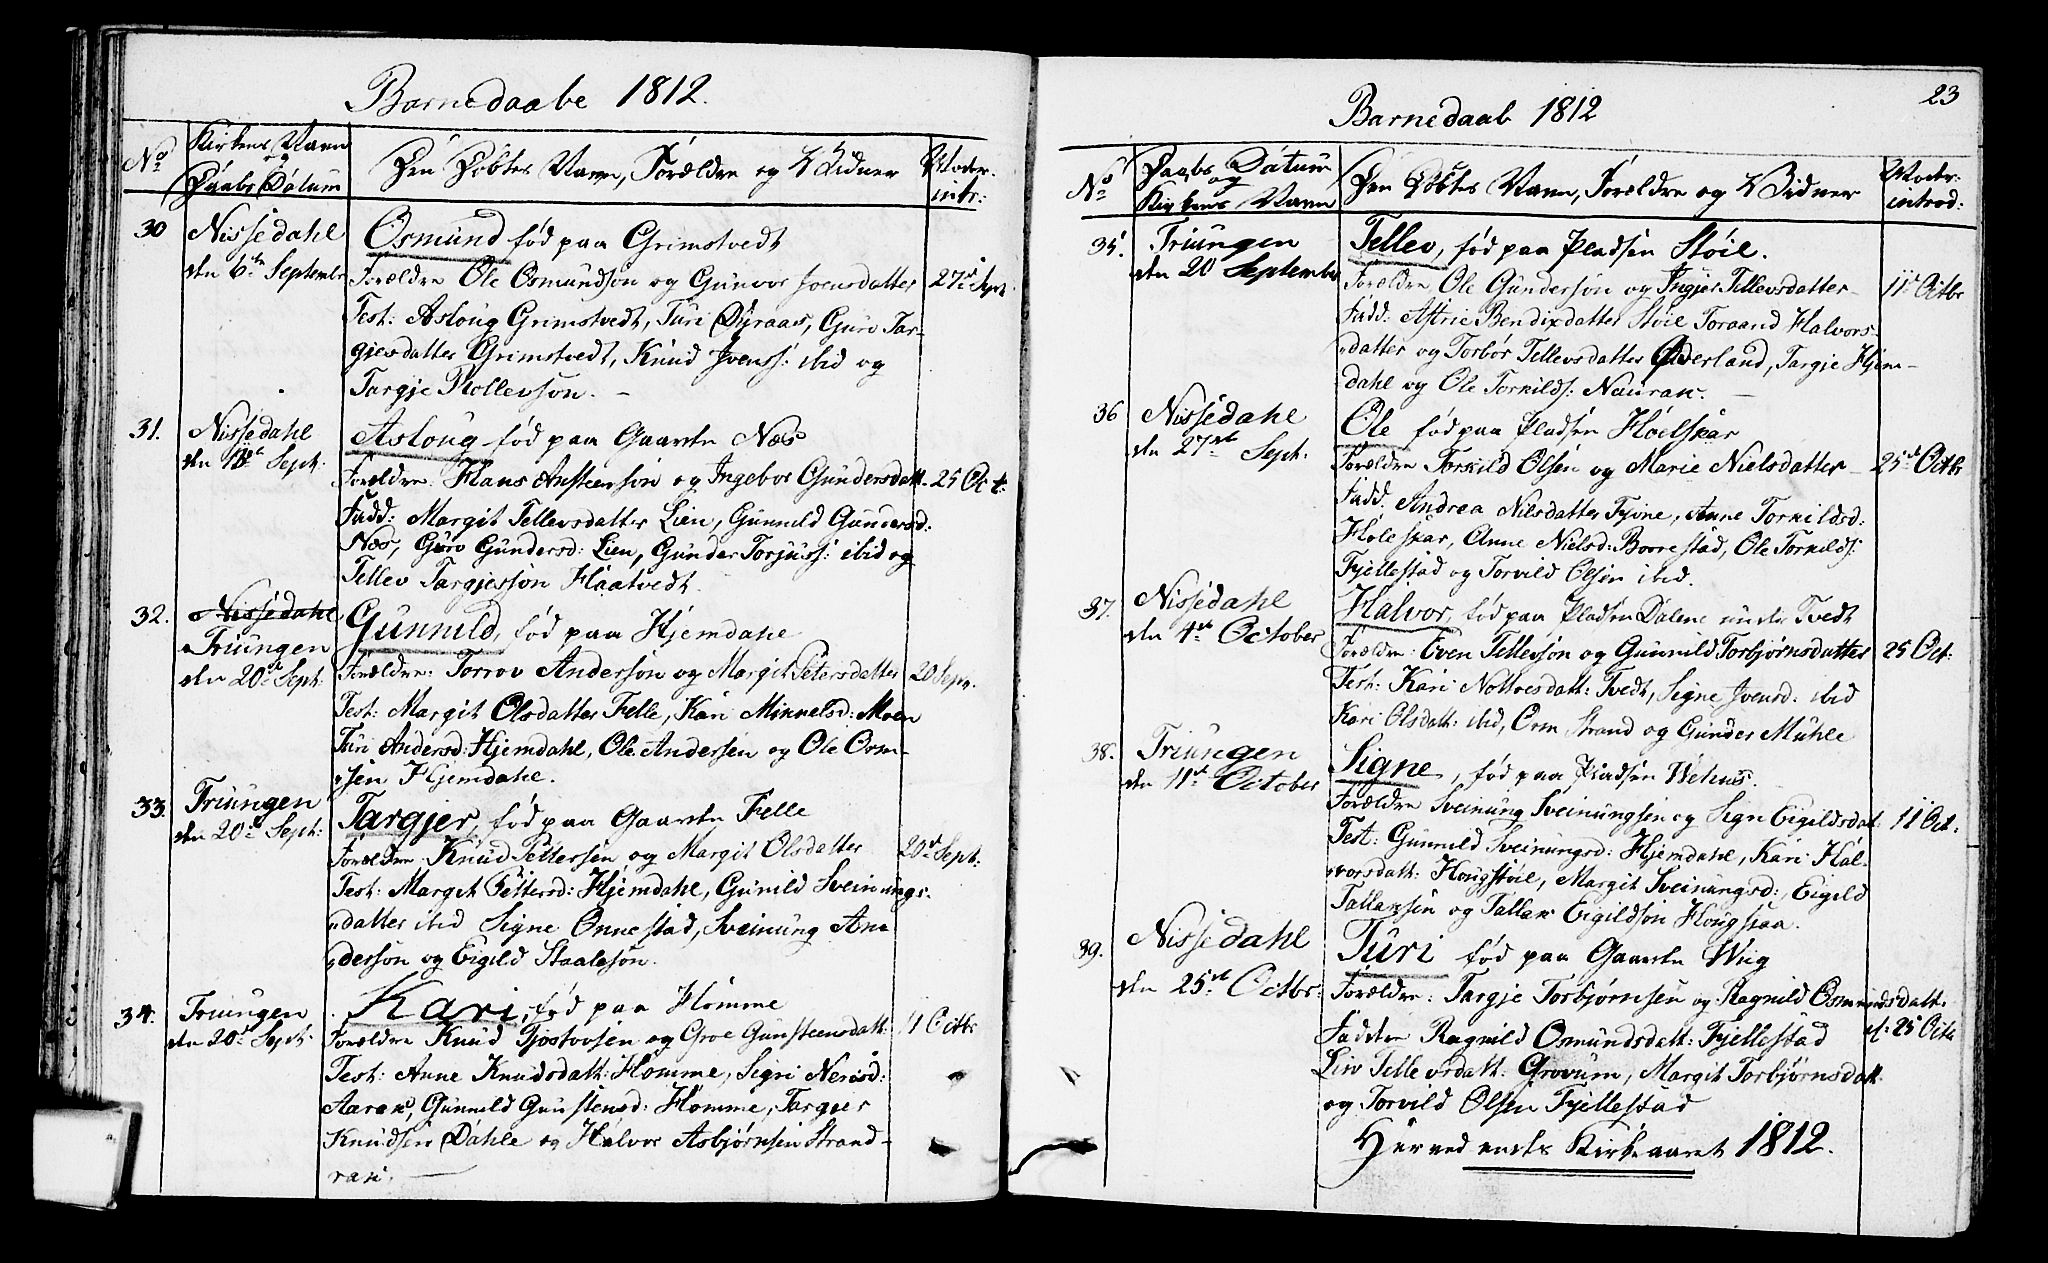 Barnedaabe 1812.
No Kirkens Navn og Daabs Datum
Den Döbtes Navn, Forældre og Vidner
Moder- intr:
30 Nissedahl
den 6te Septembr
Osmund fød paa Grimstvedt
Forældre Ole Osmundson og Gunvor Joensdatter 27de Sept
Test: Asloug Grimstvedt, Turi Dyraas, Guro Tar-
gjersdatter Grimstvedt, Knud Ivenss: ibid og
Targje Rollevson. —
31. Nissedahl
den Sept:
Asloug fød paa Gaarden Næs
Forældre: Hans Anstensøn og Ingebor Gundersdatt. 25 Oct:
Fadd: Margit Tellevsdatter Lien, Gunnild Gundersd:
Næs, Guro Gundersd: Lien, Gunder Torjuss: ibid og
Tellev Targjersson Haatvedt
32. Nissedahl
Triungen
den 20de Sept.
Gunnild, fød paa Hjemdahl
Forældre: Torrov Andersøn og Margit Petersdatter 20 Sept.
Test: Margit Olsdatter Felle, Kari Mikkelsd: Moen
Turi Andersd: Hjemdahl, Ole Andersen og Ole Orm-
sen Hjemdahl.
33. Triungen
den 20de Sept:
Targjer, fød paa Gaarden Felle
Forældre: Knud Pettersen og Margit Olsdatter 20de Sept.
Test: Margit Pettersd: Hjemdahl, Gunild Sveinungs-
datter ibid Signe Onnestad, Sveinung An-
dersøn og Eigild Staalesøn.
34. Triungen
den 20de Sept:
Kari, fød paa Homme
Forældre Knud Tjøstovsen og Groe Gunsteensdatt: 11 Octbr
Test: Anne Knudsdatt: Homme, Sigri Nerisd:
Aarak, Gunnild Gunstensd: Homme, Targjer
Knudsen Dahle og Halvor Asbjørnsen Strand-
rak. —
23
Barnedaab 1812
No Daabs Datum og Kirkens Navn
Den Döbtes Navn, Forældre og Vidner
Moder: introd:
35. Triungen
den 20 Septembr
Tellev, fød paa Pladsen Støil.
Forældre Ole Gundersøn og Ingjer Tellevsdatter 11te Octbr
Fadd: Astrie Bendixdatter Støil Toraand Halvors-
datter og Torbør Tellevsdatter Øverland, Targje Hjem-
dahl og Ole Torkilds: Naurak. —
36 Nissedahl
den 27de Sept:
Ole fød paa Pladsen Hoelskar
Forældre Torkild Olsen og Marie Nielsdatter 25de Octbr
Fadd. Andrea Nilsdatter Fjone, Anne Torkildsd:
Holeskar, Anne Nielsd: Borrestad, Ole Torkilds:
Fjellestad og Torvild Olsen ibid.
37. Nissedahl
den 4de October
Halvor, fød paa Pladsen Dalene under Tvedt
Forældre: Even Tellevsøn og Gunnild Torbjørnsdatter 25 Oct:
Test: Kari Nottvesdatt: Tvedt, Signe Ivensd: ibid
Kari Olsdatt: ibid, Orm Strand og Gunder Muhle
38. Triungen
den 11te October
Signe, fød paa Pladsen Wehus.
Forældre Sveinung Sveinungsen og Sign Eigildsdat: 11 Oct.
Test: Gunnild Sveinungsd: Hjemdahl, Kari Hal-
vorsdatt: Hougstøil, Margit Sveinungsd: Eigild
Tallaksen og Tallak Eigildsøn Hougstaa.
39. Nissedahl
den 25de Octbr:
Turi fød paa Gaarden Wiig
Forældre: Targje Torbjørnsen og Ragnild Osmundsdatt:
Fadder Ragnild Osmundsdatt: Fjellestad d: 25 Octb
Liv Tellevsdatt: Grovum, Margit Torbjørnsdatt
og Torvild Olsen Fjellestad
Herved endes Kirkeaaret 1812.